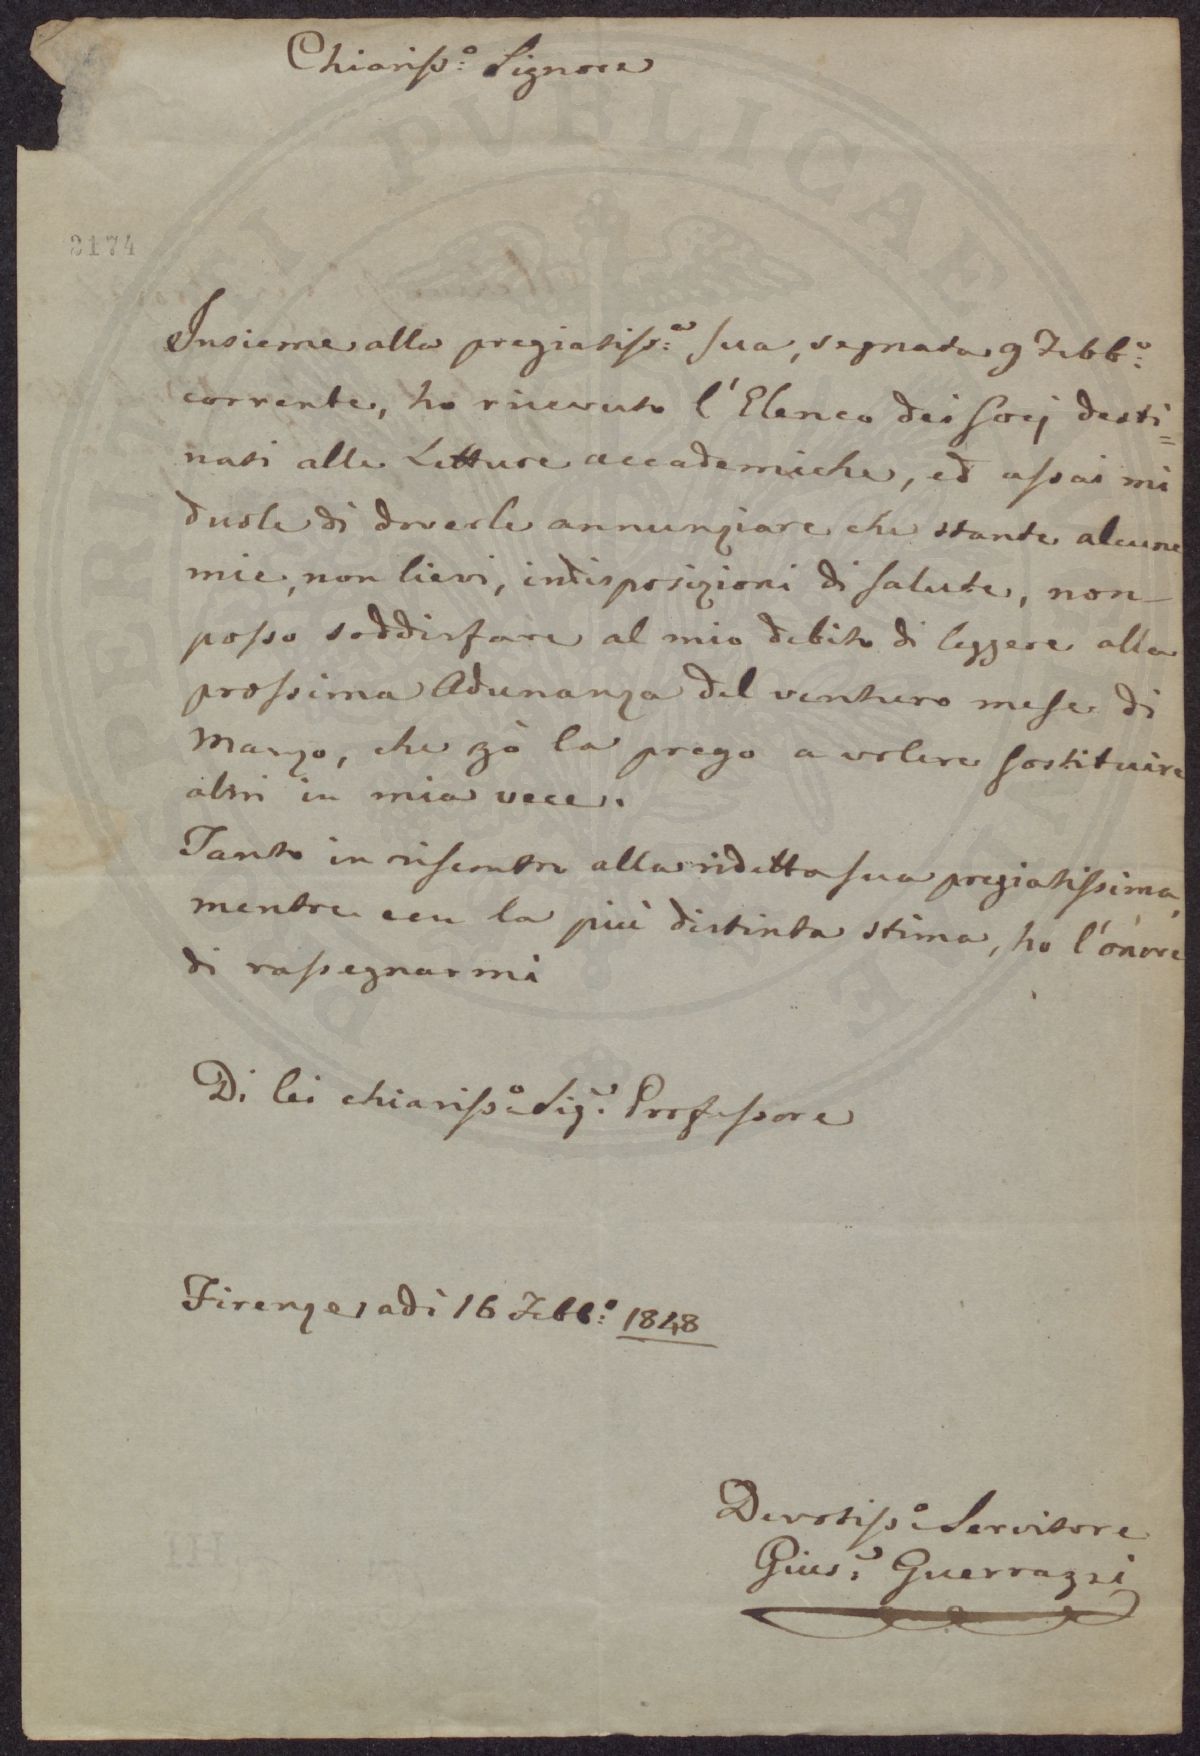 Chiariss.º Signore
2174
Insieme alla pregiatiss.ª sua, segnata 9 Febb.º
corrente, ho ricevuto l'Elenco dei Socj desti=
nati alle Letture accademiche, ed assai mi
duole di doverle annunziare che stante alcune
mie, non lievi, indisposizioni di salute, non
posso soddisfare al mio debito di leggere alla
prossima Adunanza del venturo mese di
Marzo, che zò la prego a volere sostituire
altri in mia vece.
Tanto in riscontro alla ridetta sua pregiatissima,
mentre con la più distinta stima, ho l'onore
di rassegnarmi
Di lei chiariss.º Sig.e Professore
Firenze, adì 16 Febb.º 1848
Devotiss.º Servitore
Gius.e Guerrazzi
PUBLICAE